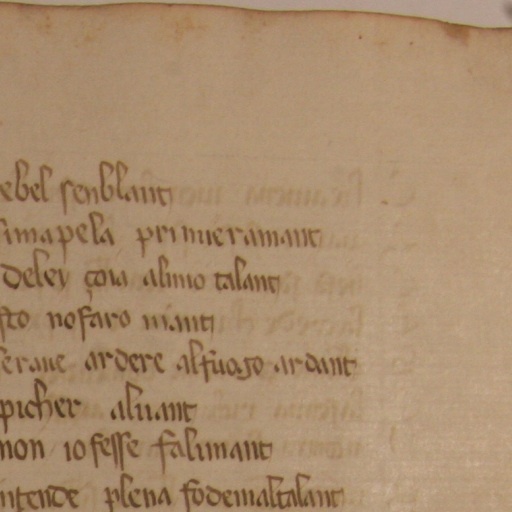 ebel senblant
simapela primieramant
deley çoia almio talant
sto nofaro niant
serave ardere alfuogo ardant
picher aluant
non iofesse falimant
intende plena fodemaltalant